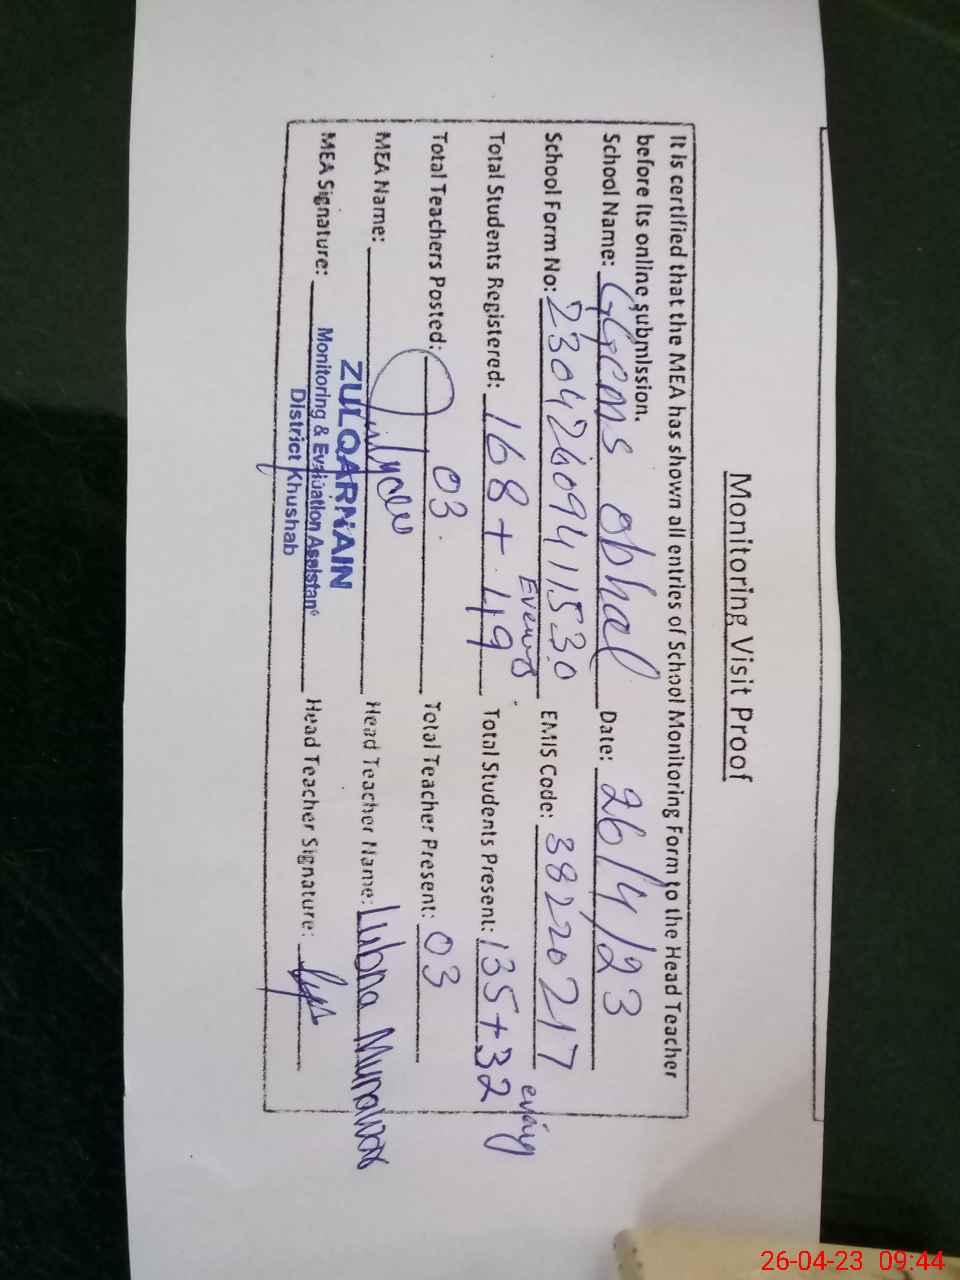 Monitoring Visit Proof
It is certified that the MEA has shown all entries of School Monitoring Form to the Head Teacher
before its online submission.
School Name: GGCMS Obhal Date: 26/4/23
School Form No: 23042609411530 EMIS Code: 38220217
Total Students Registered: 168 + 49 Total Students Present: 135+32
Total Teachers Posted: 03 Total Teacher Present: 03
MEA Name: ZULQARNAIN Head Teacher Name: Lubna Munawar
MEA Signature: Head Teacher Signature:
Monitoring & Evaluation Assistant
District Khushab
26-04-23 09:44